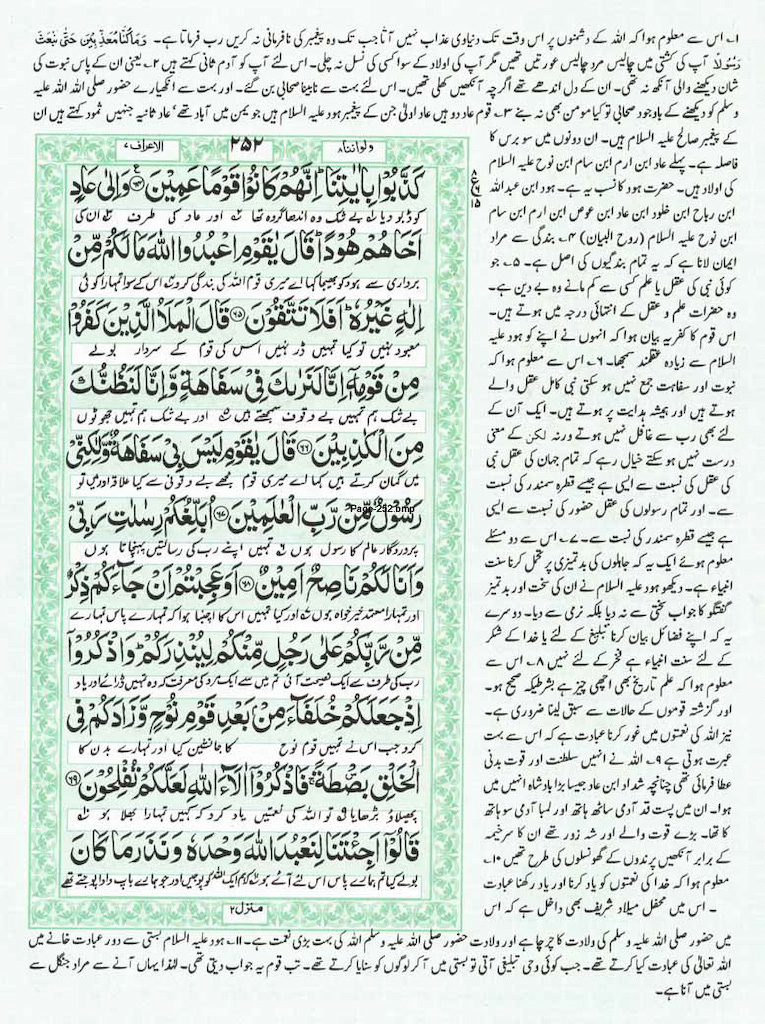 ۱۔ اس سے معلوم ہوا کہ اللہ کے دشمنوں پر اس وقت تک دنیاوی عذاب نہیں آتا جب تک وہ پیغمبر کی نافرمانی نہ کریں رب فرماتا ہے۔ وَمَا كُنَّا مُعَذِّبِيْنَ حَتّٰى نَبْعَثَ
رَسُوْلًا آپ کی کشتی میں چالیس مرد چالیس عورتیں تھیں مگر آپ کی اولاد کے سوا کسی کی نسل نہ چلی۔ اس لئے آپ کو آدم ثانی کہتے ہیں ۲۔ یعنی ان کے پاس نبوت کی
شان دیکھنے والی آنکھ نہ تھی۔ ان کے دل اندھے تھے اگرچہ آنکھیں کھلی تھیں۔ اس لئے بہت سے نابینا صحابی بن گئے۔ اور بہت سے انکھیارے حضور صلی اللہ علیہ
وسلم کو دیکھنے کے باوجود صحابی تو کیا مومن بھی نہ بنے ۳۔ قوم عاد دو ہیں عاد اولیٰ جن کے پیغمبر ہود علیہ السلام ہیں جو یمن میں آباد تھے، عاد ثانیہ جنہیں ثمود کہتے ہیں ان
کے پیغمبر صالح علیہ السلام ہیں۔ ان دونوں میں سو برس کا
فاصلہ ہے۔ پہلے عاد ابن ارم ابن سام ابن نوح علیہ السلام
کی اولاد ہیں۔ حضرت ہود کا نسب یہ ہے۔ ہود ابن عبداللہ
ابن رباح ابن خلود ابن عاد ابن عوص ابن ارم ابن سام
ابن نوح علیہ السلام (روح البیان) ۴۔ بندگی سے مراد
ایمان لانا ہے کہ یہ تمام بندگیوں کی اصل ہے۔ ۵۔ جو
کوئی نبی کی عقل یا علم کسی سے کم مانے وہ بے دین ہے۔
وہ حضرات علم و عقل کے انتہائی درجہ میں ہوتے ہیں۔
اس قوم کا کفر یہ بیان ہوا کہ انہوں نے اپنے کو ہود علیہ
السلام سے زیادہ عقلمند سمجھا۔ ۶۔ اس سے معلوم ہوا کہ
نبوت اور سفاہت جمع نہیں ہو سکتی نبی کامل عقل والے
ہوتے ہیں اور ہمیشہ ہدایت پر ہوتے ہیں۔ ایک آن کے
لئے بھی رب سے غافل نہیں ہوتے ورنہ لکن کے معنی
درست نہیں ہو سکتے خیال رہے کہ تمام جہان کی عقل نبی
کی عقل کی نسبت سے ایسی ہے جیسے قطرہ سمندر کی نسبت
سے۔ اور تمام رسولوں کی عقل حضور کی نسبت سے ایسی
ہے جیسے قطرہ سمندر کی نسبت سے۔ ۷۔ اس سے دو مسئلے
معلوم ہوئے ایک یہ کہ جاہلوں کی بدتمیزی پر تحمل کرنا سنت
انبیاء ہے۔ دیکھو ہود علیہ السلام نے ان کی سخت اور بدتمیز
گفتگو کا جواب سختی سے نہ دیا بلکہ نرمی سے دیا۔ دوسرے
یہ کہ اپنے فضائل بیان کرنا تبلیغ کے لئے یا خدا کے شکر
کے لئے سنت انبیاء ہے فخر کے لئے نہیں ۸۔ اس سے
معلوم ہوا کہ علم تاریخ بھی اچھی چیز ہے بشرطیکہ صحیح ہو۔
اور گزشتہ قوموں کے حالات سے سبق لینا ضروری ہے۔
نیز اللہ کی نعمتوں میں غور کرنا عبادت ہے کہ اس سے بہت
عبرت ہوتی ہے ۹۔ اللہ نے انہیں سلطنت اور قوت بدنی
عطا فرمائی تھی چنانچہ شداد ابن عاد جیسا بڑا بادشاہ انہیں میں
ہوا۔ ان میں پست قد آدمی ساٹھ ہاتھ اور لمبا آدمی سو ہاتھ
کا تھا۔ بڑے قوت والے اور شہ زور تھے ان کا سر خیمہ
کے برابر آنکھیں پرندوں کے گھونسلوں کی طرح تھیں ۱۰۔
معلوم ہوا کہ خدا کی نعمتوں کو یاد کرنا اور یاد رکھنا عبادت
۔ اس میں محفل میلاد شریف بھی داخل ہے کہ اس
الاعراف،
۲۵۲
ولواننا۸
كَذَّبُوْا بِاٰيٰتِنَا ؕ اِنَّهُمْ كَانُوْا قَوْمًا عَمِيْنَ ﴿۶۴﴾ وَاِلٰى عَادٍ
کو ڈبو دیا بے شک وہ اندھا گروہ تھا اور عاد کی طرف ان کی
اَخَاهُمْ هُوْدًا ؕ قَالَ يٰقَوْمِ اعْبُدُوا اللّٰهَ مَا لَكُمْ مِّنْ
برادری سے ہود کو بھیجا کہا اے میری قوم اللہ کی بندگی کرو اس کے سوا تمہارا کوئی
اِلٰهٍ غَيْرُهٗ ؕ اَفَلَا تَتَّقُوْنَ ﴿۶۵﴾ قَالَ الْمَلَاُ الَّذِيْنَ كَفَرُوْا
معبود نہیں تو کیا تمہیں ڈر نہیں اس کی قوم کے سردار بولے
مِنْ قَوْمِهٖۤ اِنَّا لَنَرٰىكَ فِيْ سَفَاهَةٍ وَّاِنَّا لَنَظُنُّكَ
بے شک ہم تمہیں بے وقوف سمجھتے ہیں اور بے شک ہم تمہیں جھوٹوں
مِنَ الْكٰذِبِيْنَ ﴿۶۶﴾ قَالَ يٰقَوْمِ لَيْسَ بِيْ سَفَاهَةٌ وَّلٰكِنِّيْ
میں گمان کرتے ہیں کہا اے میری قوم مجھے بے وقوفی سے کیا علاقہ اور میں تو
رَسُوْلٌ مِّنْ رَّبِّ الْعٰلَمِيْنَ ﴿۶۷﴾ اُبَلِّغُكُمْ رِسٰلٰتِ رَبِّيْ
Page-252.bmp
پروردگار عالم کا رسول ہوں تمہیں اپنے رب کی رسالتیں پہنچاتا ہوں
وَاَنَا لَكُمْ نَاصِحٌ اَمِيْنٌ ﴿۶۸﴾ اَوَعَجِبْتُمْ اَنْ جَآءَكُمْ ذِكْرٌ
اور تمہارا معتمد خیر خواہ ہوں اور کیا تمہیں اس کا اچنبا ہوا کہ تمہارے پاس تمہارے
مِّنْ رَّبِّكُمْ عَلٰى رَجُلٍ مِّنْكُمْ لِيُنْذِرَكُمْ ؕ وَاذْكُرُوْۤا
رب کی طرف سے ایک نصیحت آئی تم میں سے ایک مرد کی معرفت کہ وہ تمہیں ڈرائے اور یاد
اِذْ جَعَلَكُمْ خُلَفَآءَ مِنْۢ بَعْدِ قَوْمِ نُوْحٍ وَّزَادَكُمْ فِي
کرو جب اس نے تمہیں قوم نوح کا جانشین کیا اور تمہارے بدن کا
الْخَلْقِ بَصْۜطَةً ۚ فَاذْكُرُوْۤا اٰلَآءَ اللّٰهِ لَعَلَّكُمْ تُفْلِحُوْنَ ﴿۶۹﴾
پھیلاؤ بڑھایا تو اللہ کی نعمتیں یاد کرو کہ کہیں تمہارا بھلا ہو
قَالُوْۤا اَجِئْتَنَا لِنَعْبُدَ اللّٰهَ وَحْدَهٗ وَنَذَرَ مَا كَانَ
بولے کیا تم ہمارے پاس اس لئے آئے ہو کہ ہم ایک اللہ کو پوجیں اور جو ہمارے باپ دادا پوجتے تھے
منزل۲
میں حضور صلی اللہ علیہ وسلم کی ولادت کا چرچا ہے اور ولادت حضور صلی اللہ علیہ وسلم اللہ کی بہت بڑی نعمت ہے۔ ۱۱۔ ہود علیہ السلام بستی سے دور عبادت خانے میں
اللہ تعالیٰ کی عبادت کیا کرتے تھے۔ جب کوئی وحی تبلیغی آتی تو بستی میں آ کر لوگوں کو سنایا کرتے تھے۔ تب قوم یہ جواب دیتی تھی۔ لہٰذا یہاں آنے سے مراد جنگل سے
بستی میں آنا ہے۔